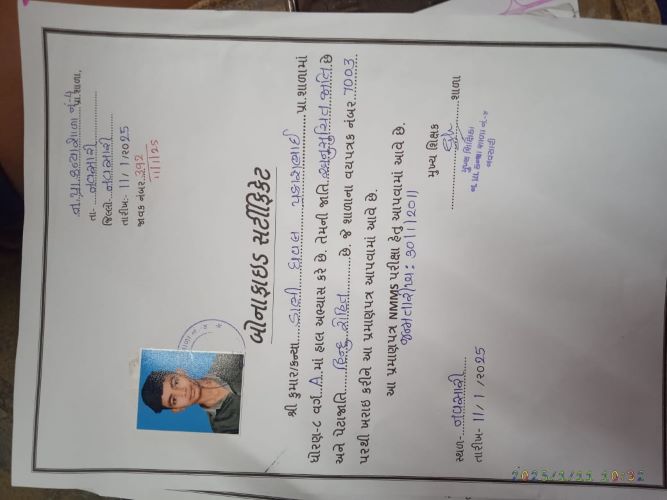 ન.પ્રા.કન્યાશાળા નં-૪ પ્રા.શાળા.
તા- નવસારી
જિલ્લો- નવસારી
તારીખ:- 11/1/2025
જાવક નંબર- 392
11/1/25
બોનાફાઇડ સર્ટીફિકેટ
શ્રી કુમાર/કન્યા ડાભી ધવલ પ્રકાશભાઈ પ્રા.શાળામાં
ધોરણ-૮ વર્ગ A માં હાલ અભ્યાસ કરે છે. તેમની જાતિ અનુસુચિત જાતિ છે
અને પેટાજાતિ હિન્દુ રોહિત છે. જે શાળાના વયપત્રક નંબર 7003
પરથી ખરાઇ કરીને આ પ્રમાણપત્ર આપવામાં આવે છે.
આ પ્રમાણપત્ર NMMS પરીક્ષા હેતુ આપવામાં આવે છે.
જન્મતારીખ : 30/1/2011
સ્થળ:- નવસારી
તારીખ- 11/1/2025
મુખ્ય શિક્ષક
શાળા
મુખ્ય શિક્ષિકા
ન.પ્રા. કન્યા શાળા નં.-૪
નવસારી